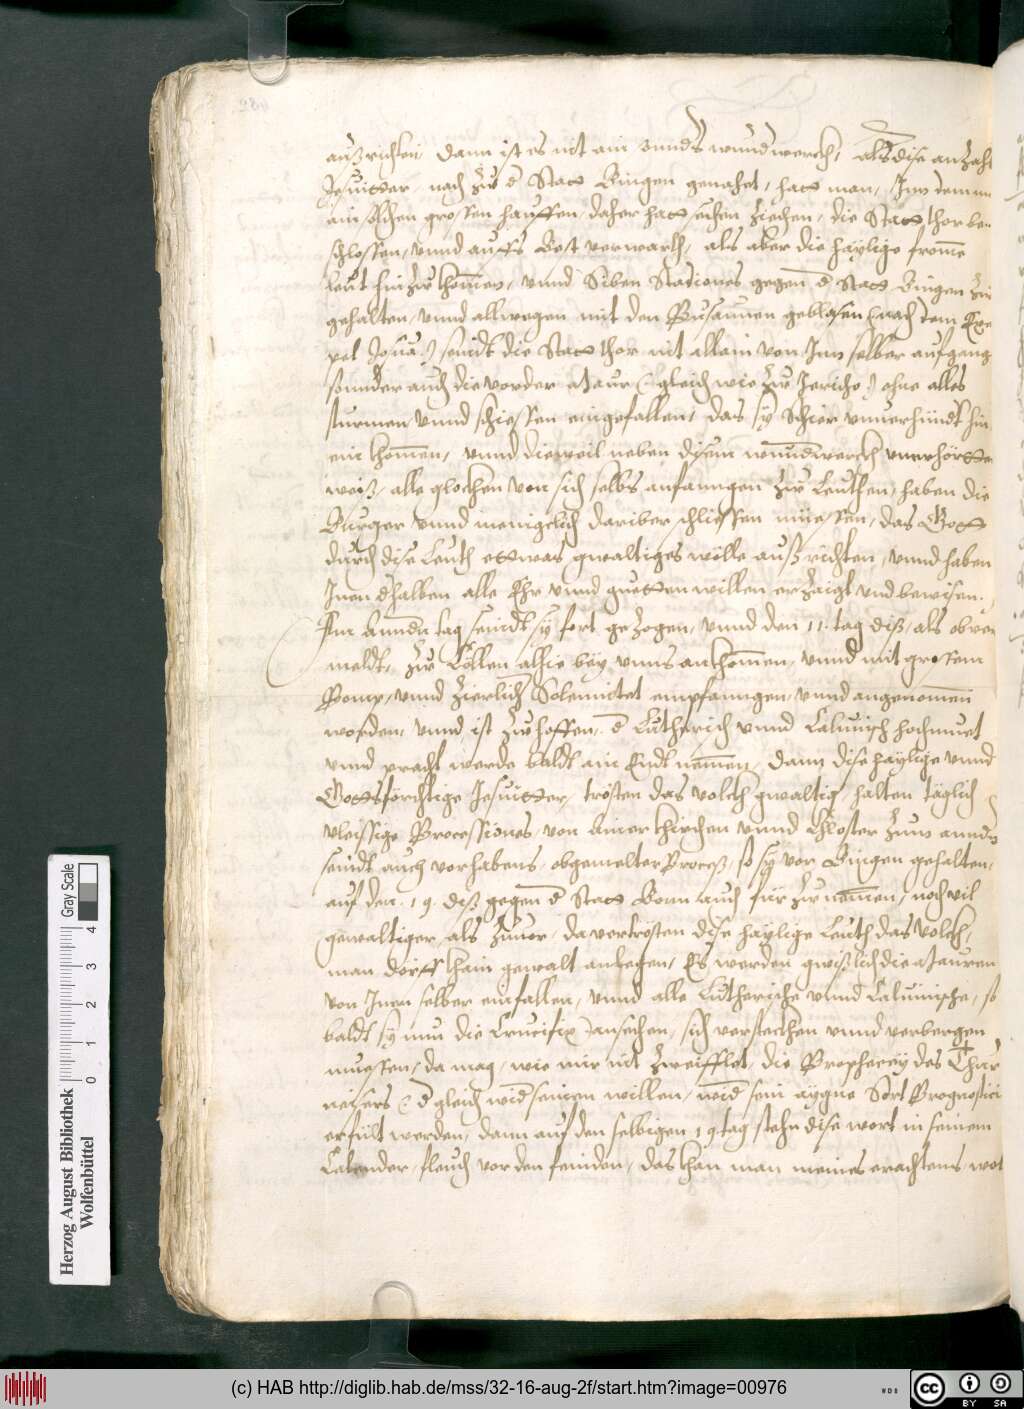 außrichten, dann ist es nit ain wunderwerckh, als dise anzahl
Jesuitter, nach zů d Statt Bingen genahet, hatt man, Inn dem
ain solchen grossen hauffen, daher hatt sehen ziehen, die Statt thor be-
schlossen, vnnd auffs Best verwarth, als aber die haylige fromē
leut hinzů khomen, vnnd Siben Stationes gegen d Statt Bingen zů
gehalten, vnnd allwegen mit den Busaunen geblasen (nach dem Exe
pel Josua) seindt die Statt thor nit allain von Inn selber aufgang
sonnder auch die vorder Maur (gleich wie zů Jericho) ohne alles
sturmen vnnd schiessen eingefallen, das sy schier vnuerhindt hin
ein khomen, vnnd dieweil neben disem wunderwerckh vnerhörtte
weiß, alle glockhen von sich selbs anfanngen zů Leuthen, haben die
Burger vnnd menigclich dariber schliessen müessen, das Gott
durch dise Leuth ettwas gwaltiges wölle außrichten, vnnd haben
Inen dhalben alle Ehr vnnd guetten willen erzaigt vnd bewisen.
Am Anndn tag seindt sy fort gezogen, vnnd den 11. tag diß, als obver
meldt, zů Cöllen alhie bey vnns ankhomen, vnnd mit grossem
Pomp, vnnd zierlich Solemnitet empfanngen, vnnd angenomen
worden, vnnd ist zůhoffen, d Lutherisch vnnd Caluinisch hochmuet
vnnd pracht werde baldt ain Endt nemen, dann dise haylige vnnd
Gottsförchtige Jesuitter, trösten das volckh gwaltig, halten täglich
vleissige Processiones, von Ainer khirchen vnnd Closter zum anndn
seindt auch vorhabens, obgemelter Proceß, so sy vor Bingen gehalten,
auf den .19. diß gegen d Statt Bonn auch für zů nemen, noch vil
gewaltiger, als zuuor, da vertrösten dise haylige Leuth das volckh,
man dörff khain gewalt anlegen, Es werden gwißlich die Mauren
von Inen selber einfallen, vnnd alle Lutherische vnnd Caluinische, so
baldt sy nun die Crucifix ansechen, sich verstecken vnnd verbergen
müessen, da mag, wie mir nit zweifflet, die Prophecey des Thur
neisers (d gleich wid seinen willen, wid sein aygne Sort Prognostici
erfült werden, dann auf den selbigen 19 tag stehn dise wort in seinem
Calender, fleuch vor den feinden, das khan man meines erachtens, wol
Gray Scale
0 1 2 3 4
Herzog August Bibliothek
Wolfenbüttel
(c) HAB http://diglib.hab.de/mss/32-16-aug-2f/start.htm?image=00976
WDB
cc
BY SA